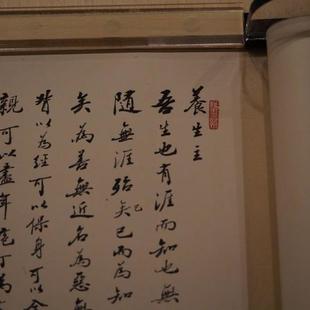 養生主
吾生也有涯而知也無
隨無涯殆矣已而為知
矣為善無近名為惡無
以為經可以保身可以全
親可以盡年庖丁為